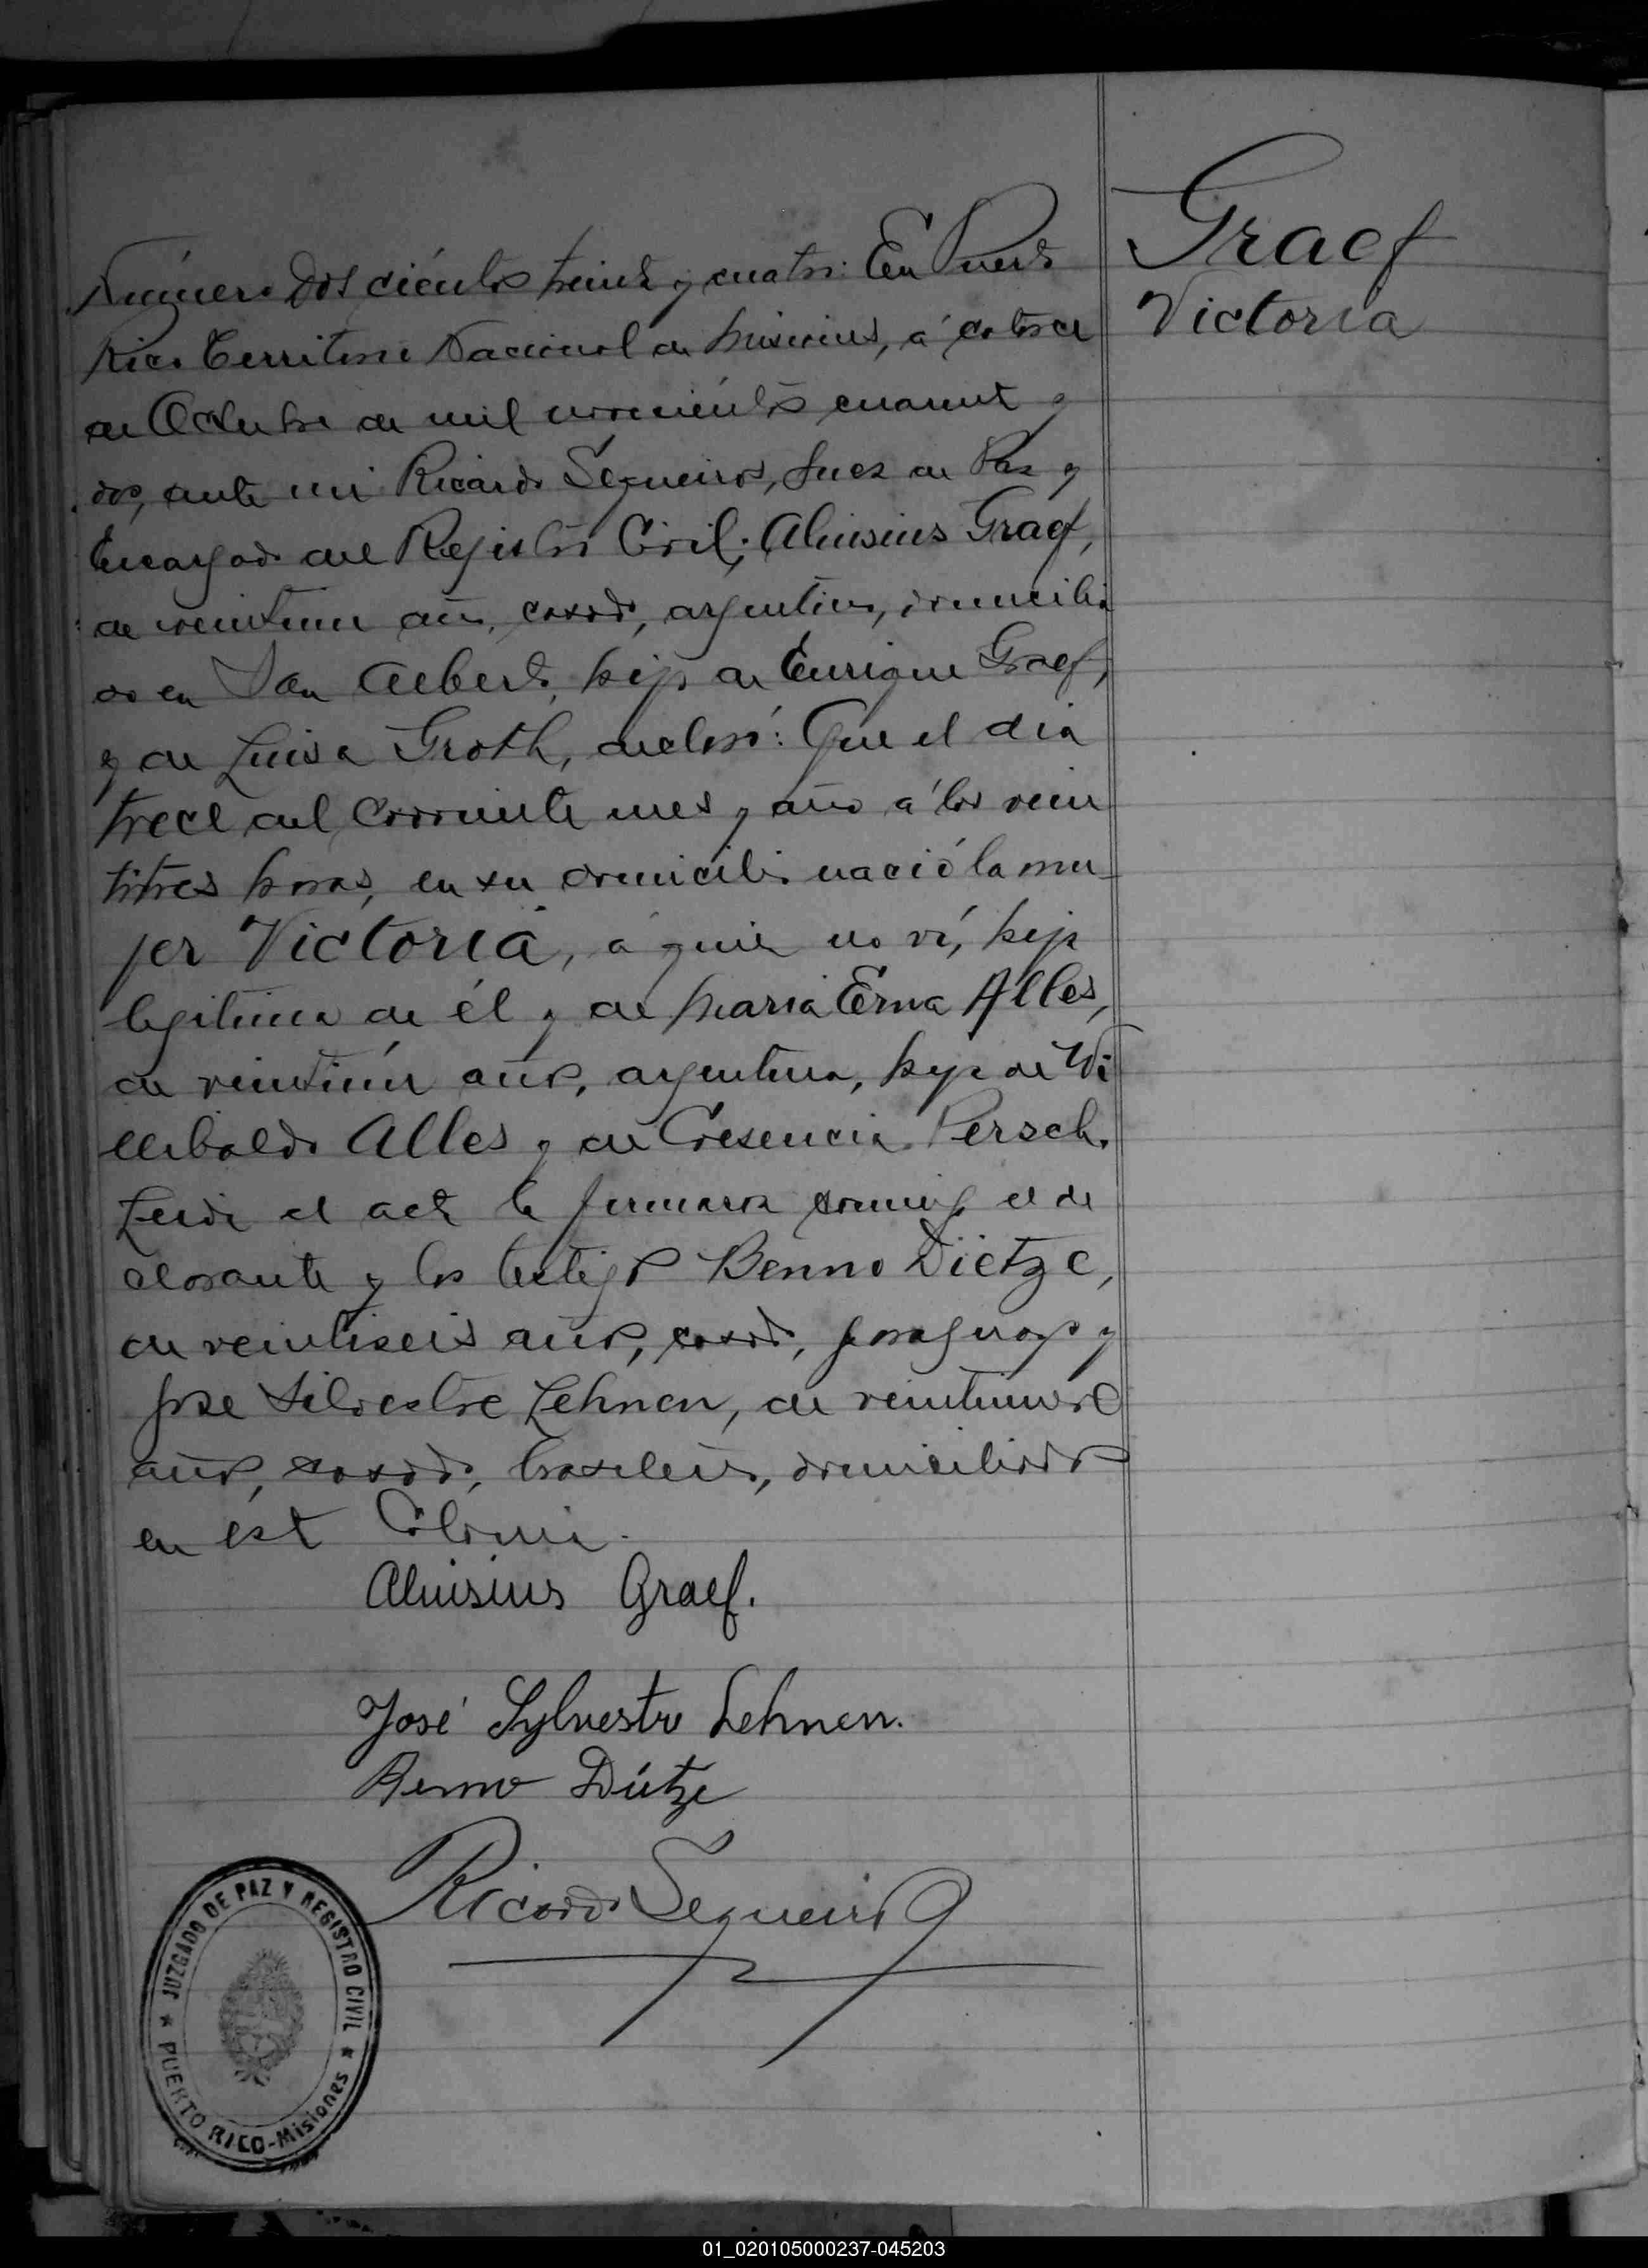 Graef
Victoria
Número Doscientos treinta y cuatro: En Puerto
Rico Territorio Nacional de Misiones, á catorce
de Octubre de mil novecientos cuarenta y
dos, ante mi Ricardo Sequeiros, Juez de Paz y
Encargado del Rejistro Civil; Aluisius Graef,
de veintiun años, casado, argentino, domicilia
do en San Alberto, hijo de Enrique Graef,
y de Luisa Groth, declaró: Que el dia
trece del corriente mes y año á las vein
titres horas, en su domicilio nació la mu
jer Victoria, á quien no ví, hija
legitima de él y de Maria Erna Alles,
de veintiún años, argentina, hija de Wi
llibaldo Alles y de Cresencia Persch.
Leida el acta la firmaron conmigo el de
clarante y los testigos Benno Dietze,
de veintiseis años, casado, paraguayo y
Jose Silvestre Lehnen, de veintinueve
años, casado, brasilero, domiciliados
en esta Colonia.
Aluisius Graef.
José Sylvestre Lehnen.
Benno Dietze
Ricardo Sequeiros
JUZGADO DE PAZ Y REGISTRO CIVIL
PUERTO RICO-Misiones
01_020105000237-045203